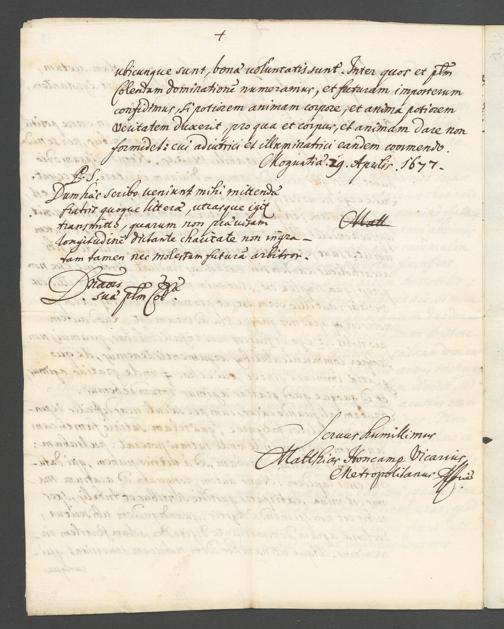 +
ubicunque sunt, bonæ voluntatis sunt. Inter quos et plm
Colendam dominationē numeramus, et futuram in posterum
confidimus, si potiorem animam corpore, et animâ potiorem
veritatem duxerit, pro qua et corpus, et animam dare non
formidet: cui adiutrici et illuminatrici eandem commendo.
Moguntiæ 29. Aprilis. 1677.
P. S.
Dum has scribo veniunt mihi mittendæ
fratris quoque litteræ, utrasque igr
transmitto, quarum non
longitudinē dictante charitate non ingra-
tam tamen nec molestam futurā arbitror.
Matt
suæ plm Col.
Servus humillimus
Matthias Honcamp Vicarius
Metropolitanus